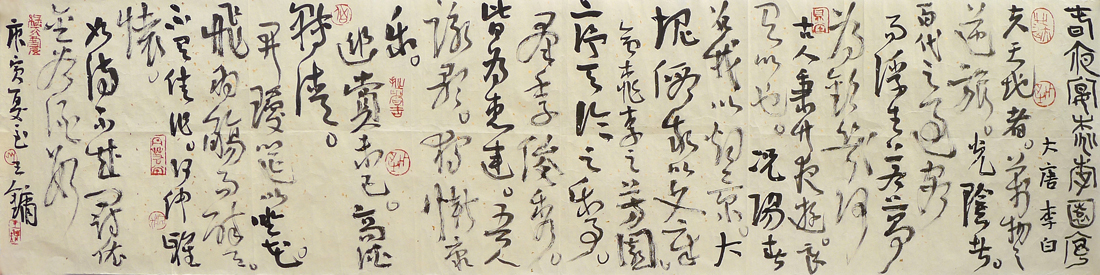 春夜宴桃李園序
大唐 李白
夫天地者。萬物之
逆旅。光陰者。
百代之過客
而浮生若夢
為歡幾何
古人秉燭夜遊。良
有以也。況陽春
召我以煙景。大
塊假我以文章
會桃李之芳園。
序天倫之樂事。
群季俊秀。
皆為惠連。吾人
詠歌。獨慚康
樂。
幽賞未已。高談
轉清。
開瓊筵以坐花。
飛羽觴而醉月。
不有佳作。何伸雅
懷。
如詩不成罰依
金谷酒數
庚寅夏 王鏞